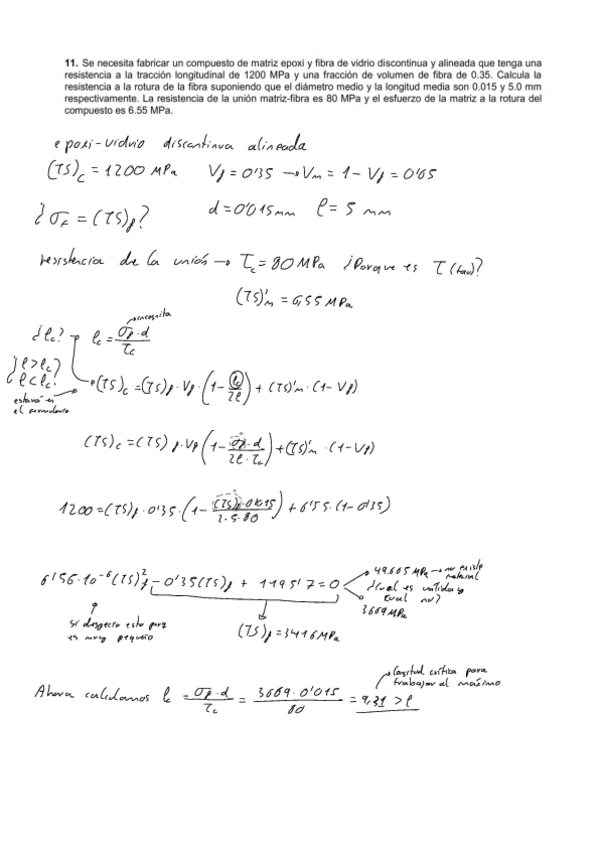 11. Se necesita fabricar un compuesto de matriz epoxi y fibra de vidrio discontinua y alineada que tenga una
resistencia a la tracción longitudinal de 1200 MPa y una fracción de volumen de fibra de 0.35. Calcula la
resistencia a la rotura de la fibra suponiendo que el diámetro medio y la longitud media son 0.015 y 5.0 mm
respectivamente. La resistencia de la unión matriz-fibra es 80 MPa y el esfuerzo de la matriz a la rotura del
compuesto es 6.55 MPa.
epoxi-vidrio discontinua alineada
(TS)c = 1200 MPa Vf = 0'35 → Vm = 1 - Vf = 0'65
¿σf = (TS)f? d = 0'015mm l = 5 mm
resistencia de la unión → τc = 80 MPa ¿Porque es τ (tau)?
(TS)'m = 6,55 MPa
incognita
¿lc? → lc = σf·d / τc
¿l>lc?
¿l<lc?
estará en
el formulario
(TS)c = (TS)f · Vf · (1 - lc/2l) + (TS)'m · (1-Vf)
(TS)c = (TS)f · Vf (1 - σf·d / 2l·τc) + (TS)'m · (1-Vf)
1200 = (TS)f · 0'35 · (1 - (TS)f·0'015 / 2·5·80) + 6'55·(1-0'35)
6'56·10⁻⁶(TS)f² - 0'35(TS)f + 1195'7 = 0
49.665 MPa → no existe
material
¿Cual es valida y
cual no?
3669 MPa
Si desprecio esto porq
es muy pequeño
(TS)f = 3416 MPa
Ahora calculamos lc = σf·d / τc = 3669·0'015 / 80 = 9,31 > l
longitud crítica para
trabajar al máximo